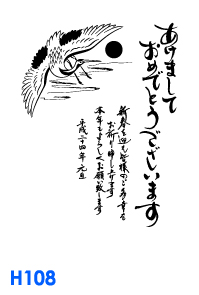 あけまして
おめでとうございます
新春を迎え皆様のご多幸を
お祈り申し上げます
本年もよろしくお願い致します
平成二十四年 元旦
H108